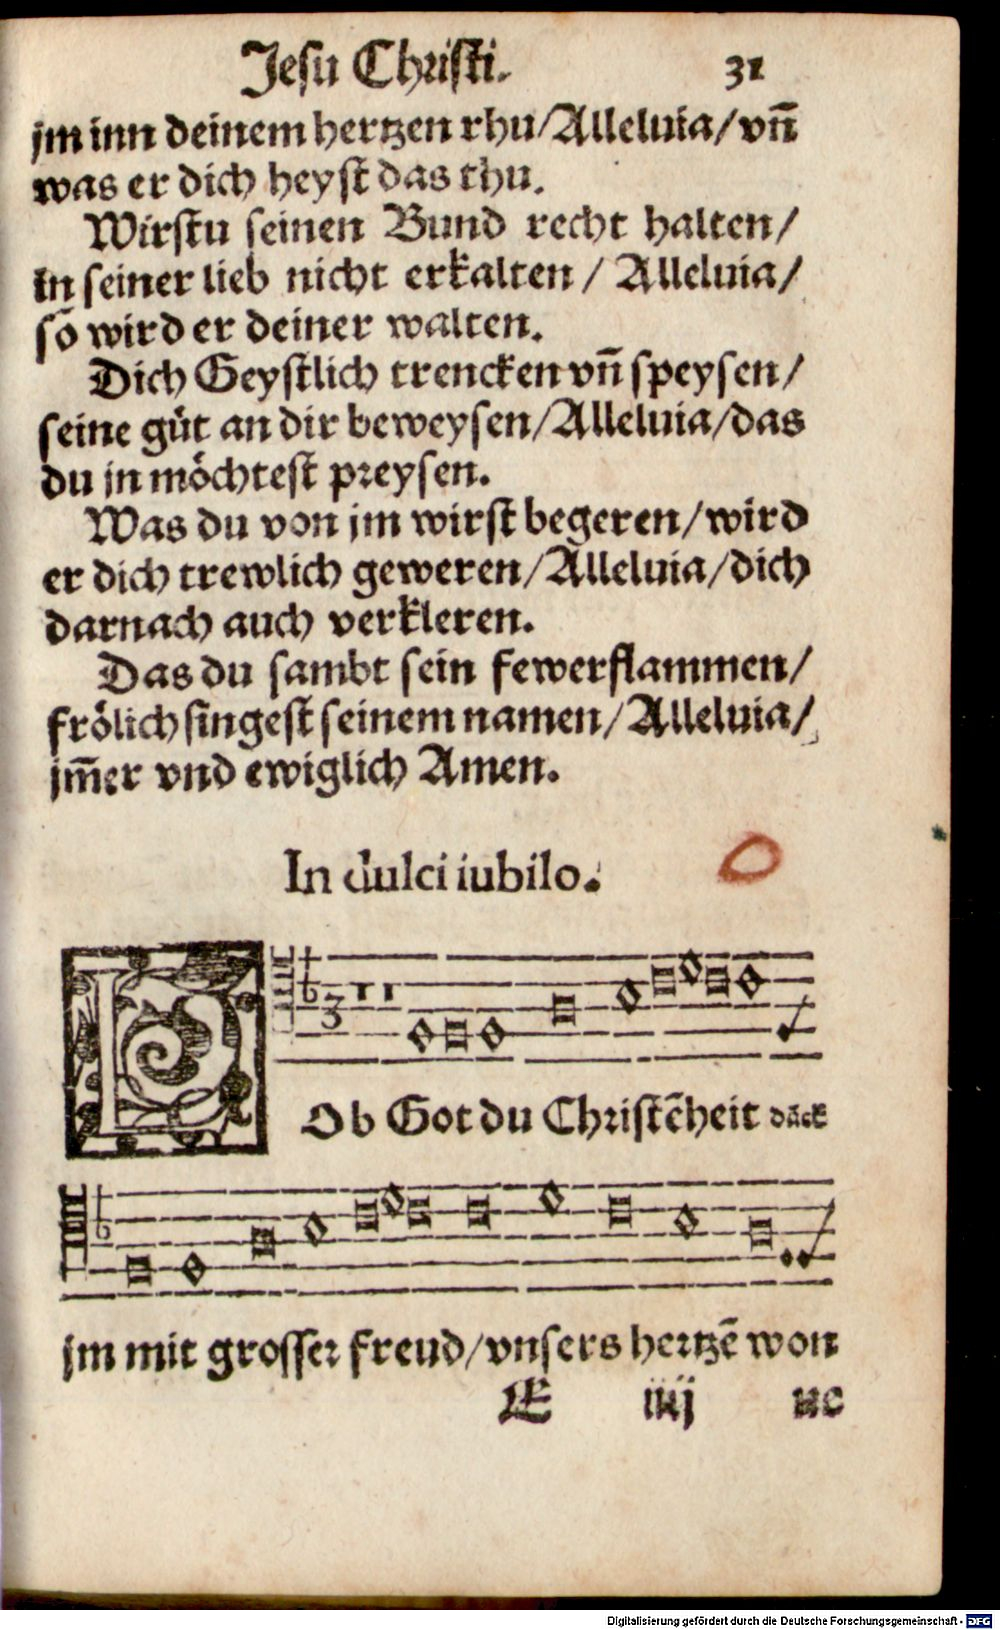 Jesu Christi. 31
jm inn deinem hertzen rhu/Alleluia/vn̄
was er dich heyst das thu.
Wirstu seinen Bund recht halten/
in seiner lieb nicht erkalten / Alleluia/
so wird er deiner walten.
Dich Geystlich trencken vn̄ speysen/
seine güt an dir beweysen/Alleluia/das
du jn möchtest preysen.
Was du von jm wirst begeren/wird
er dich trewlich geweren/Alleluia/dich
darnach auch verkleren.
Das du sambt sein fewerflammen/
frölich singest seinem namen/Alleluia/
jm̄er vnd ewiglich Amen.
In dulci iubilo.
LOb Got du Christēheit dāck
jm mit grosser freud/vnsers hertzē won
E iiij ne
Digitalisierung gefördert durch die Deutsche Forschungsgemeinschaft - DFG